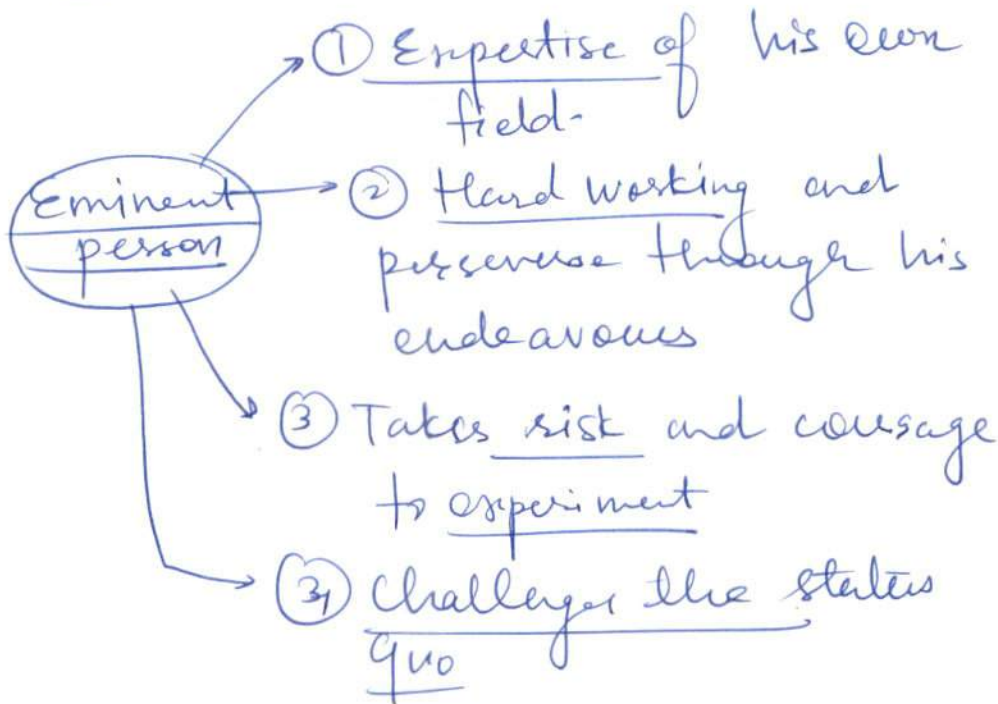 ① Expertise of his own
field-
Eminent
person
② Hard working and
perseverse through his
endeavours
③ Takes risk and courage
to experiment
④ Challenges the status
quo